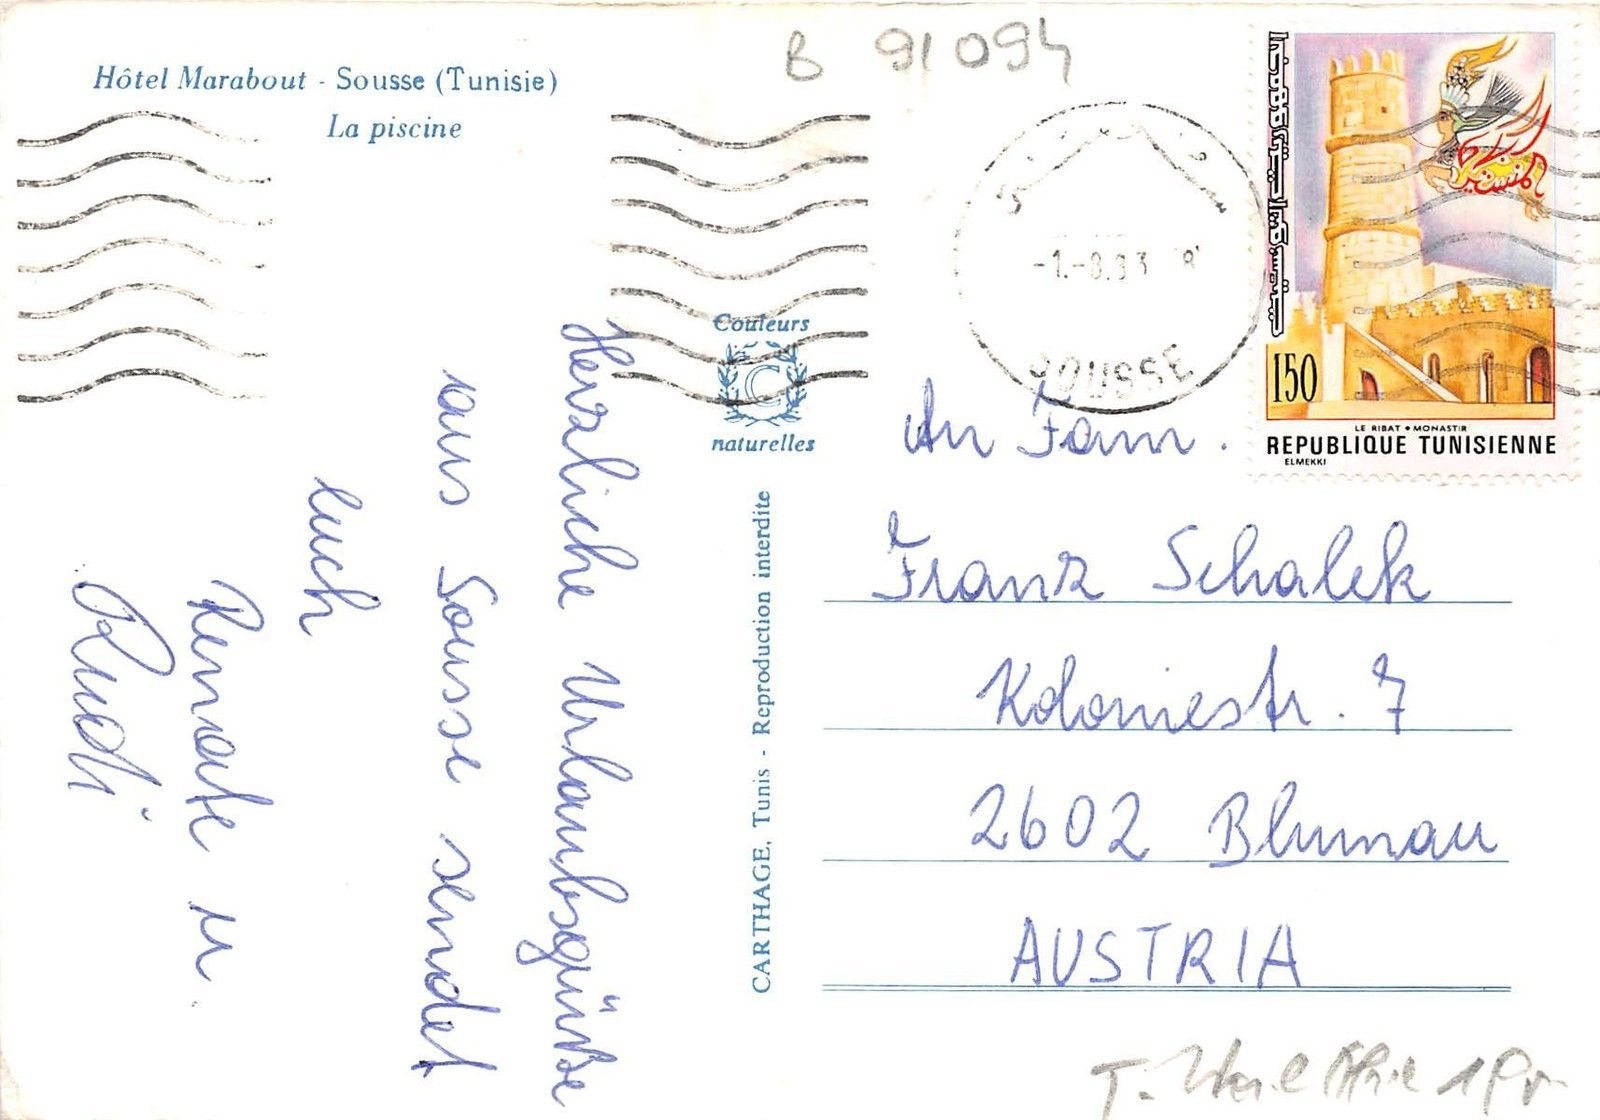 Hôtel Marabout - Sousse (Tunisie)
La piscine
B 91094
-1.-8.83
SOUSSE
Couleurs
C
naturelles
CARTHAGE, Tunis - Reproduction interdite
Herzliche Urlaubsgrüsse
aus Sousse sendet
Euch
Renate u.
Rudi
An Fam.
Franz Schalek
Koloniestr. 7
2602 Blumau
AUSTRIA
المنستير
150
LE RIBAT • MONASTIR
REPUBLIQUE TUNISIENNE
ELMEKKI